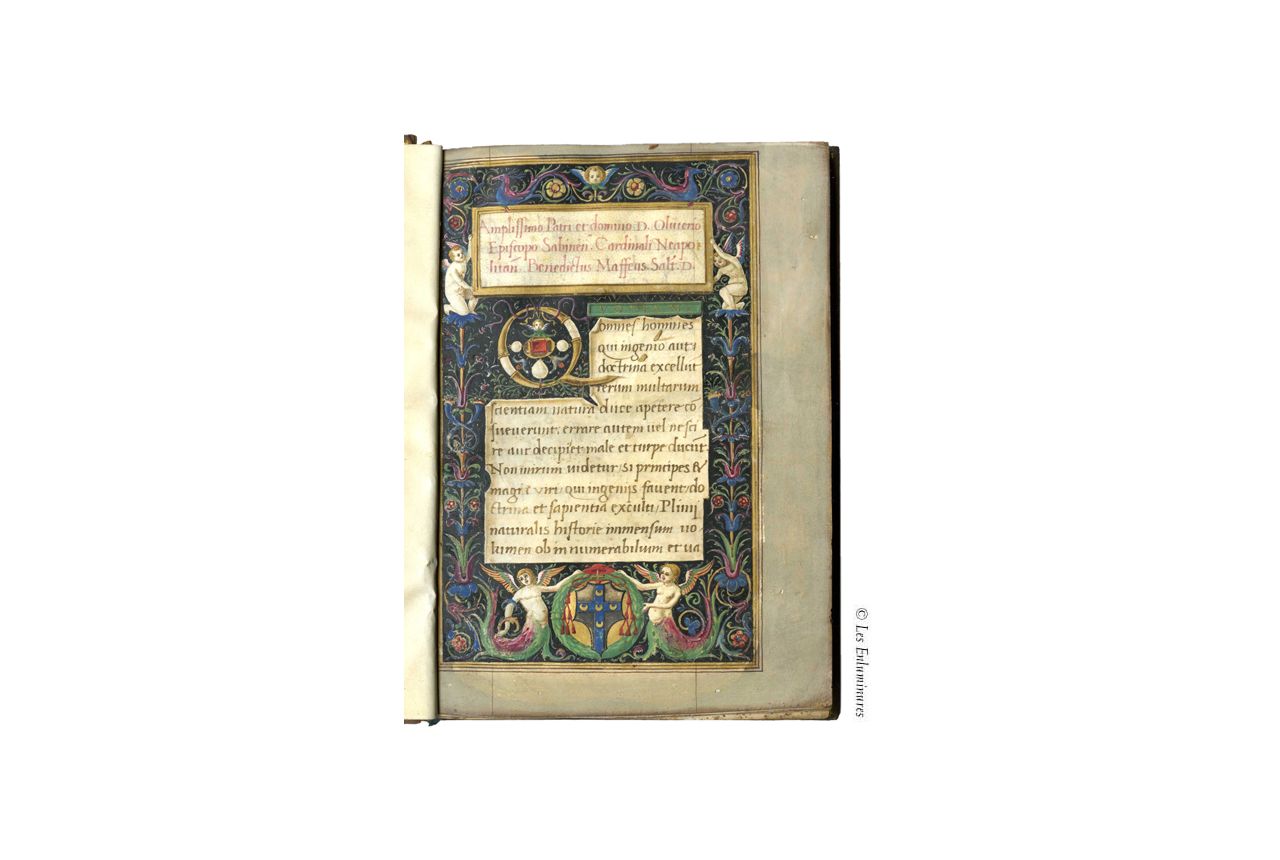 Amplissimo Patri et domino D. Oliuerio
Episcopo Sabinen̄. Cardinali Neapo
litan̄. Benedictus Maffeus Salt̄. D.
omnes homines
qui ingenio aut
doctrina excellūt
rerum multarum
scientiam natura duce apetere cō
sueuerunt: errare autem uel nesci
re aut decipi et male et turpe ducūt.
Non mirum uidetur si principes &
magni uiri qui ingenijs fauent do
ctrina et sapientia exculti Plinij
naturalis historie immensum uo
lumen ob innumerabilium et ua
© Les Enluminures